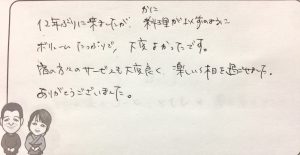 12年ぶりに来ましたが、料理がかにづくしで
ボリュームたっぷりで、大変よかったです。
宿の方々のサービスも大変良く、楽しい一日を過ごせました。
ありがとうございました。